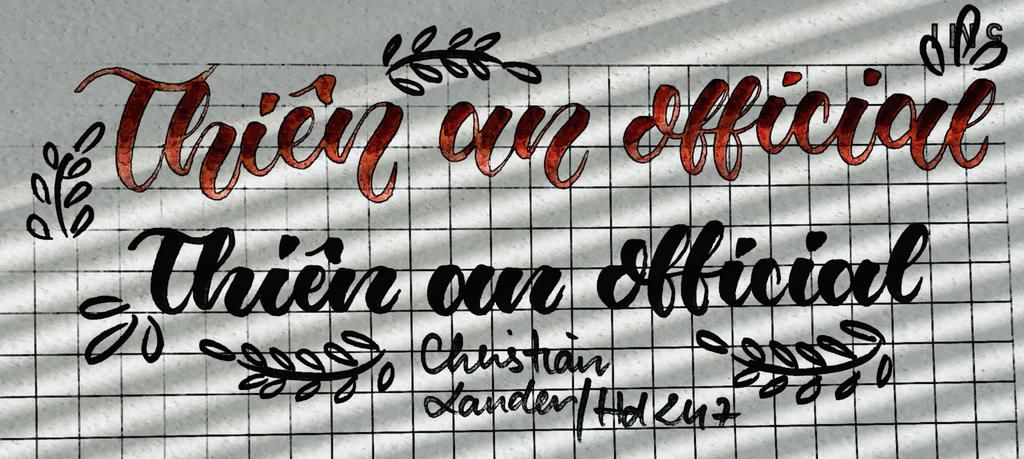 INS
Thiên an official
Thiên an official
Christian
Lander/Hd247